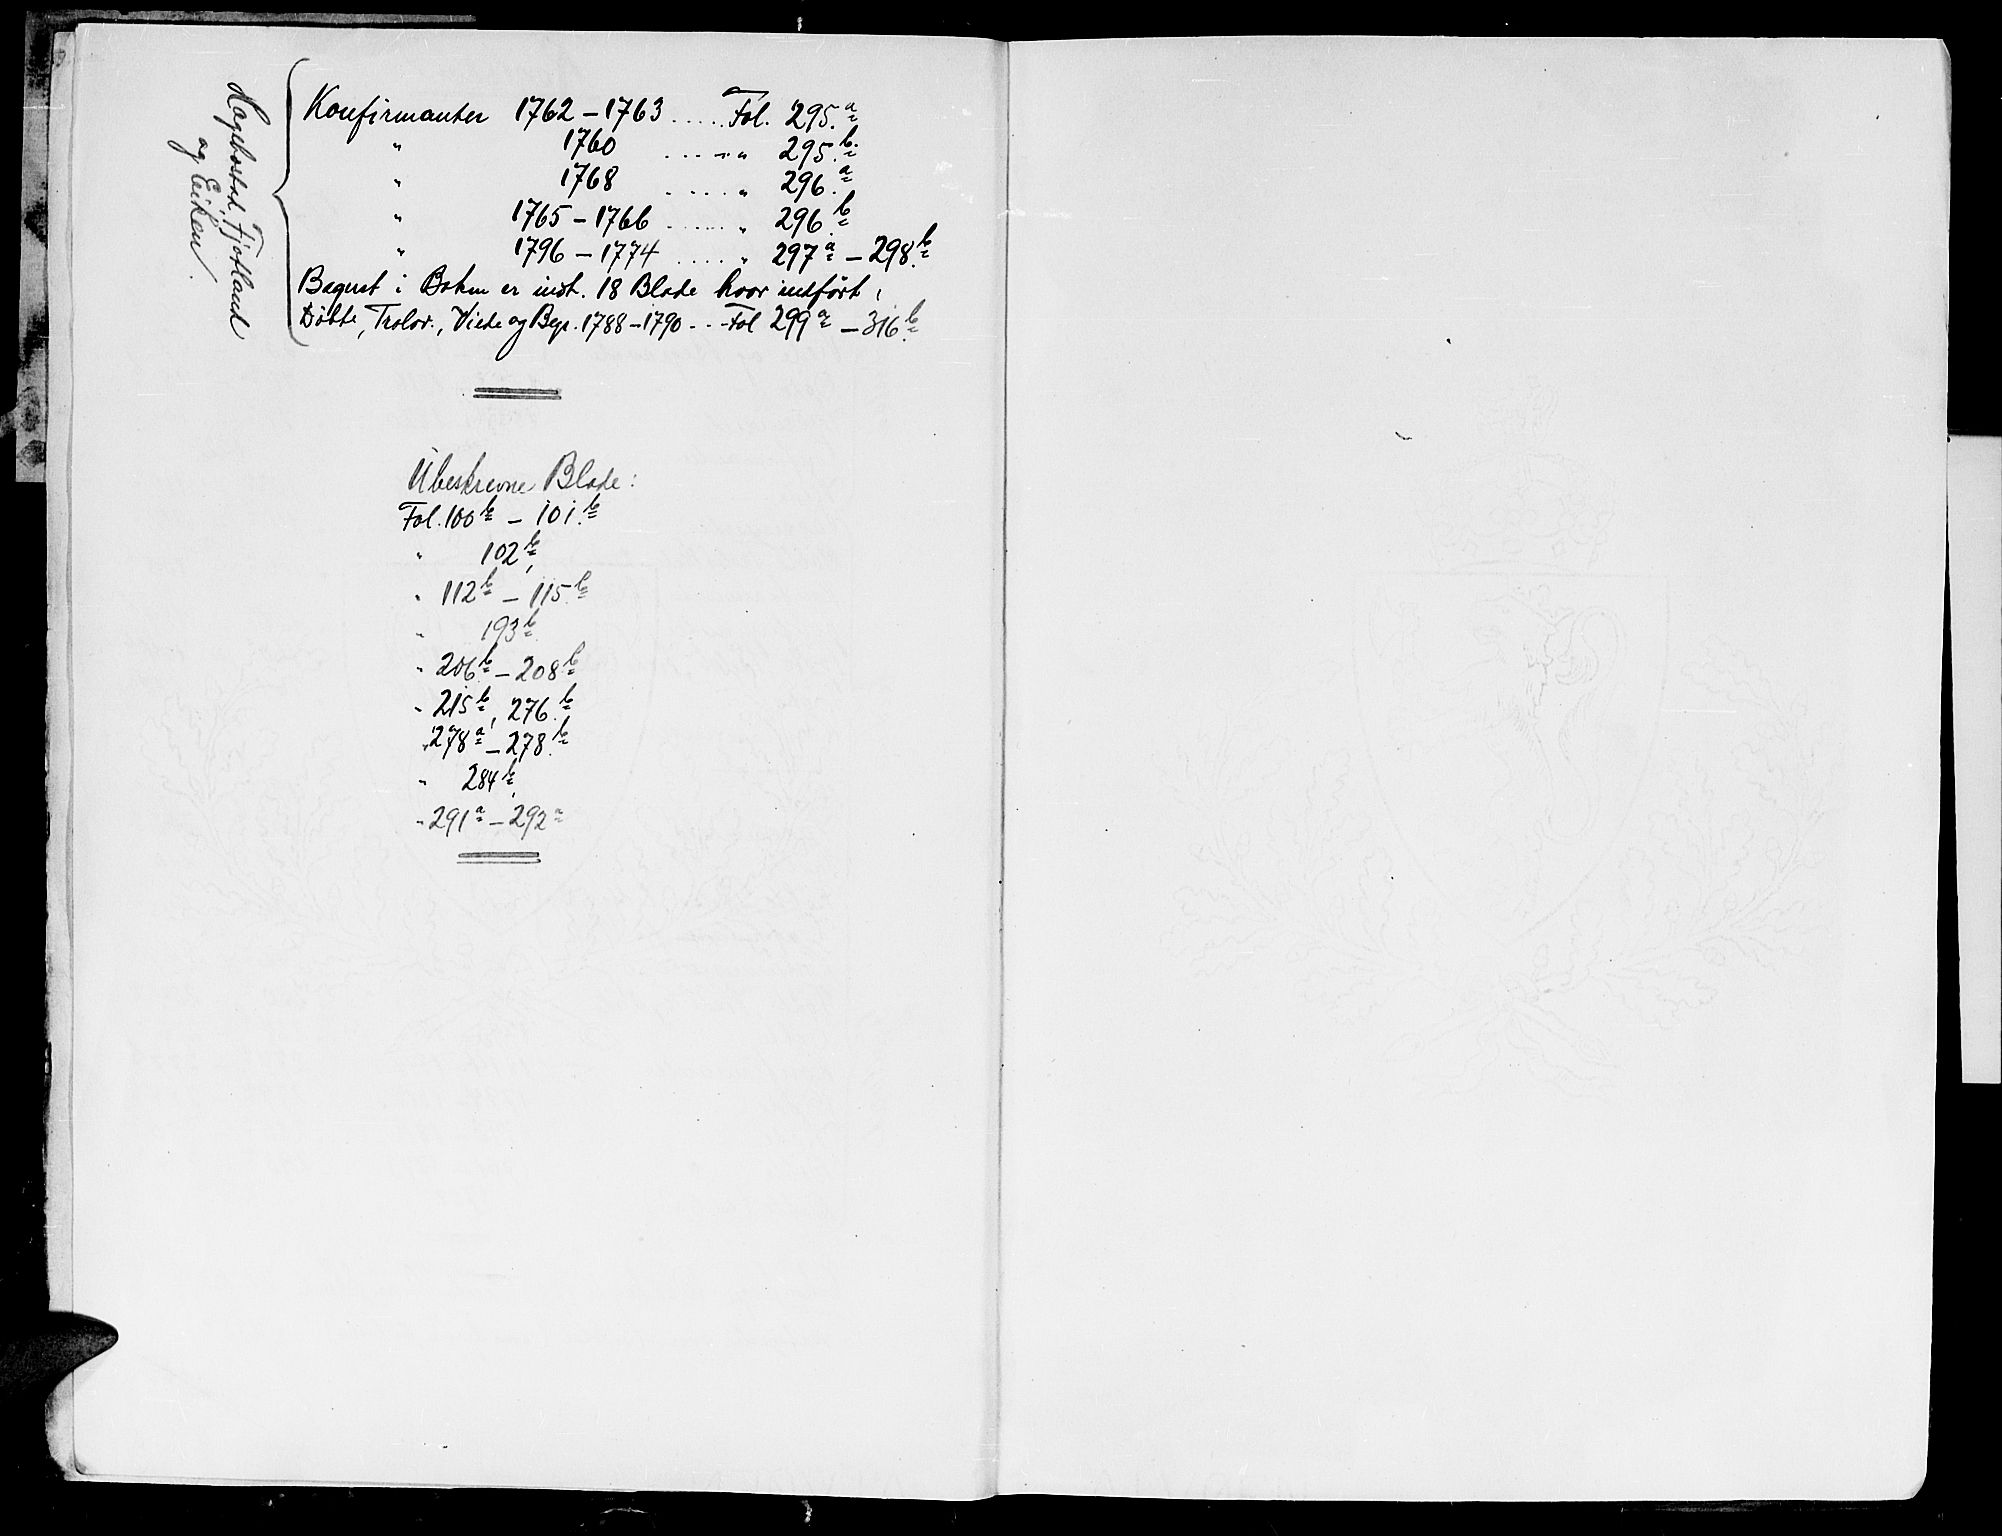 Hægebostad, Fjotland
og Eiken.
Konfirmanter 1762 – 1763 ..... Fol. 295.a
" 1760 ..... " 295.b
" 1768 ..... " 296.a
" 1765 – 1766 ...... " 296.b
" 1796 – 1774 ..... " 297a – 298.b
Bagerst i Boken er inds. 18 Blade hvor indført:
Døbte, Trolov., Viede og Begr. 1788 – 1790 ... Fol 299a – 316.b
Ubeskrevne Blade:
Fol. 100b – 101.b
" 102b,
" 112b – 115.b
" 193b
" 206b – 208b
" 215b, 276.b
" 278a – 278.b
" 284b,
" 291a – 292a